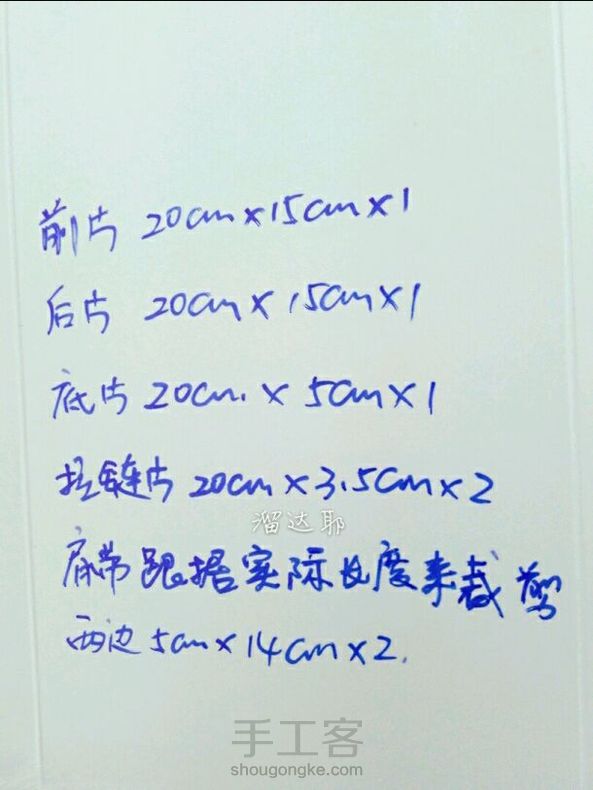 前片 20cm×15cm×1
后片 20cm×15cm×1
底片 20cm.×5cm×1
拉链片 20cm×3.5cm×2
溜达耶
肩带跟据实际长度来裁剪
两边5cm×14cm×2.
手工客
shougongke.com